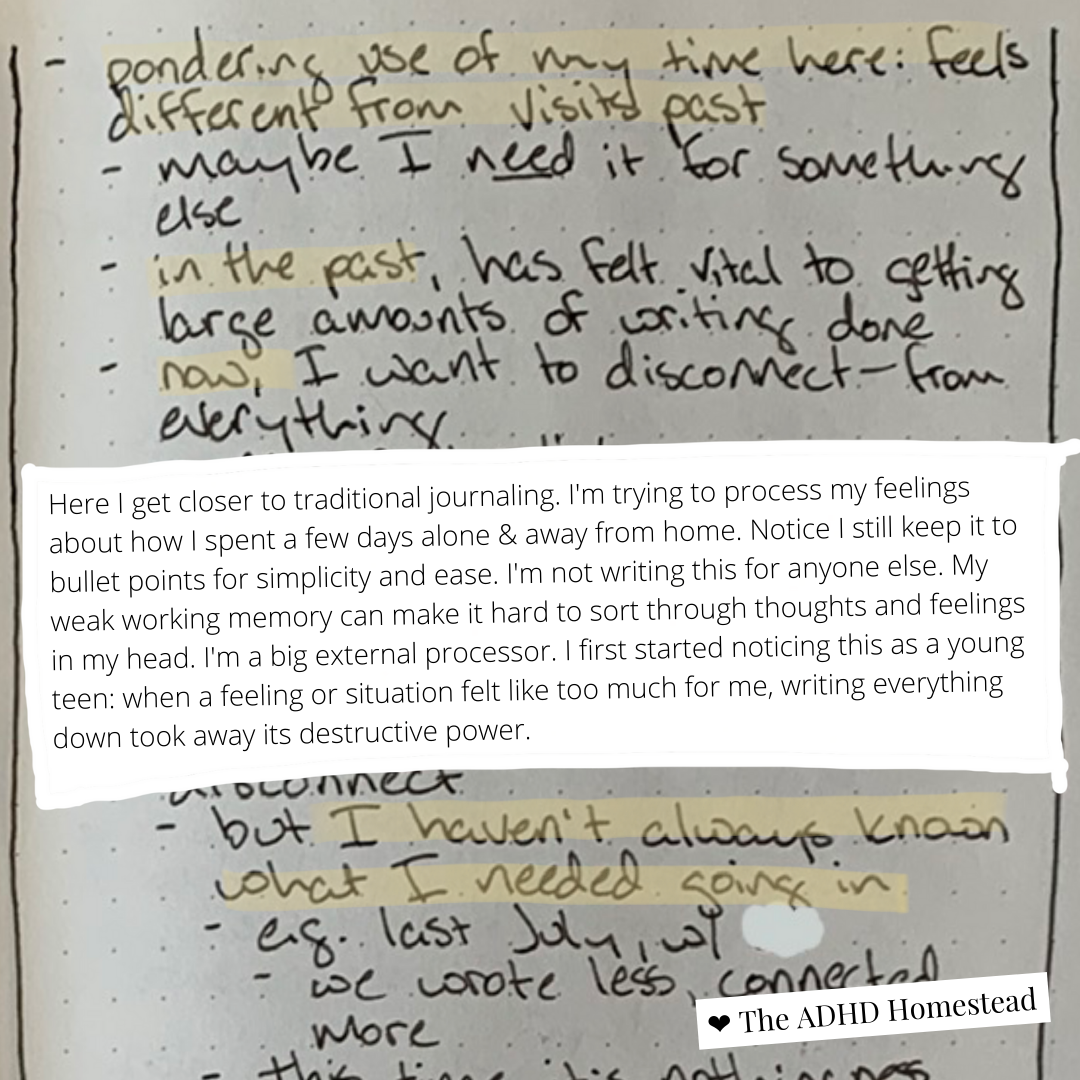 - pondering use of my time here: feels
different from visits past
- maybe I need it for something
else
- in the past, has felt vital to getting
large amounts of writing done
- now, I want to disconnect—from
everything.
Here I get closer to traditional journaling. I'm trying to process my feelings
about how I spent a few days alone & away from home. Notice I still keep it to
bullet points for simplicity and ease. I'm not writing this for anyone else. My
weak working memory can make it hard to sort through thoughts and feelings
in my head. I'm a big external processor. I first started noticing this as a young
teen: when a feeling or situation felt like too much for me, writing everything
down took away its destructive power.
disconnect
- but I haven't always known
what I needed going in
- e.g. last July, w/
- we wrote less, connected
more
- this time it's nothingness
❤ The ADHD Homestead